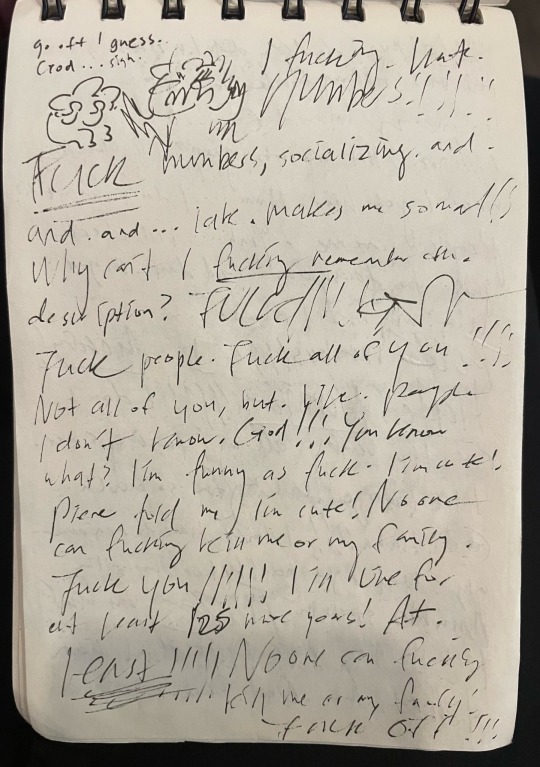 go off I guess.
God... sigh.
I fucking. hate.
Numbers!!!!!
FUCK numbers, socializing. and.
and. and... idk. makes me so mad!!!
Why can't I fucking remember the.
description? FUCK!!!!
Fuck people. Fuck all of you!!!!
Not all of you, but. like. people
I don't know. God!!! You know
what? I'm funny as fuck. I'm cute!
told me I'm cute! No one
can fucking kill me or my family.
Fuck you!!!!!! I'll live for
at least 125 more years! At.
least!!!!! No one can fucking
kill me or my family!
Fuck off!!!